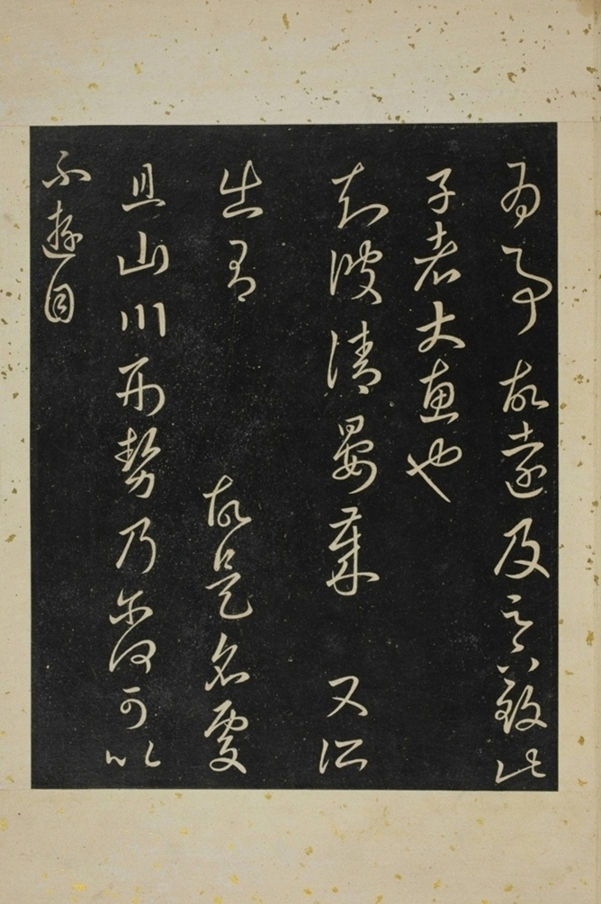 為事故遠及足下致此
子者大惠也
知彼清晏歲 又所
出有 故是名處
且山川形勢乃爾何可以
不遊目